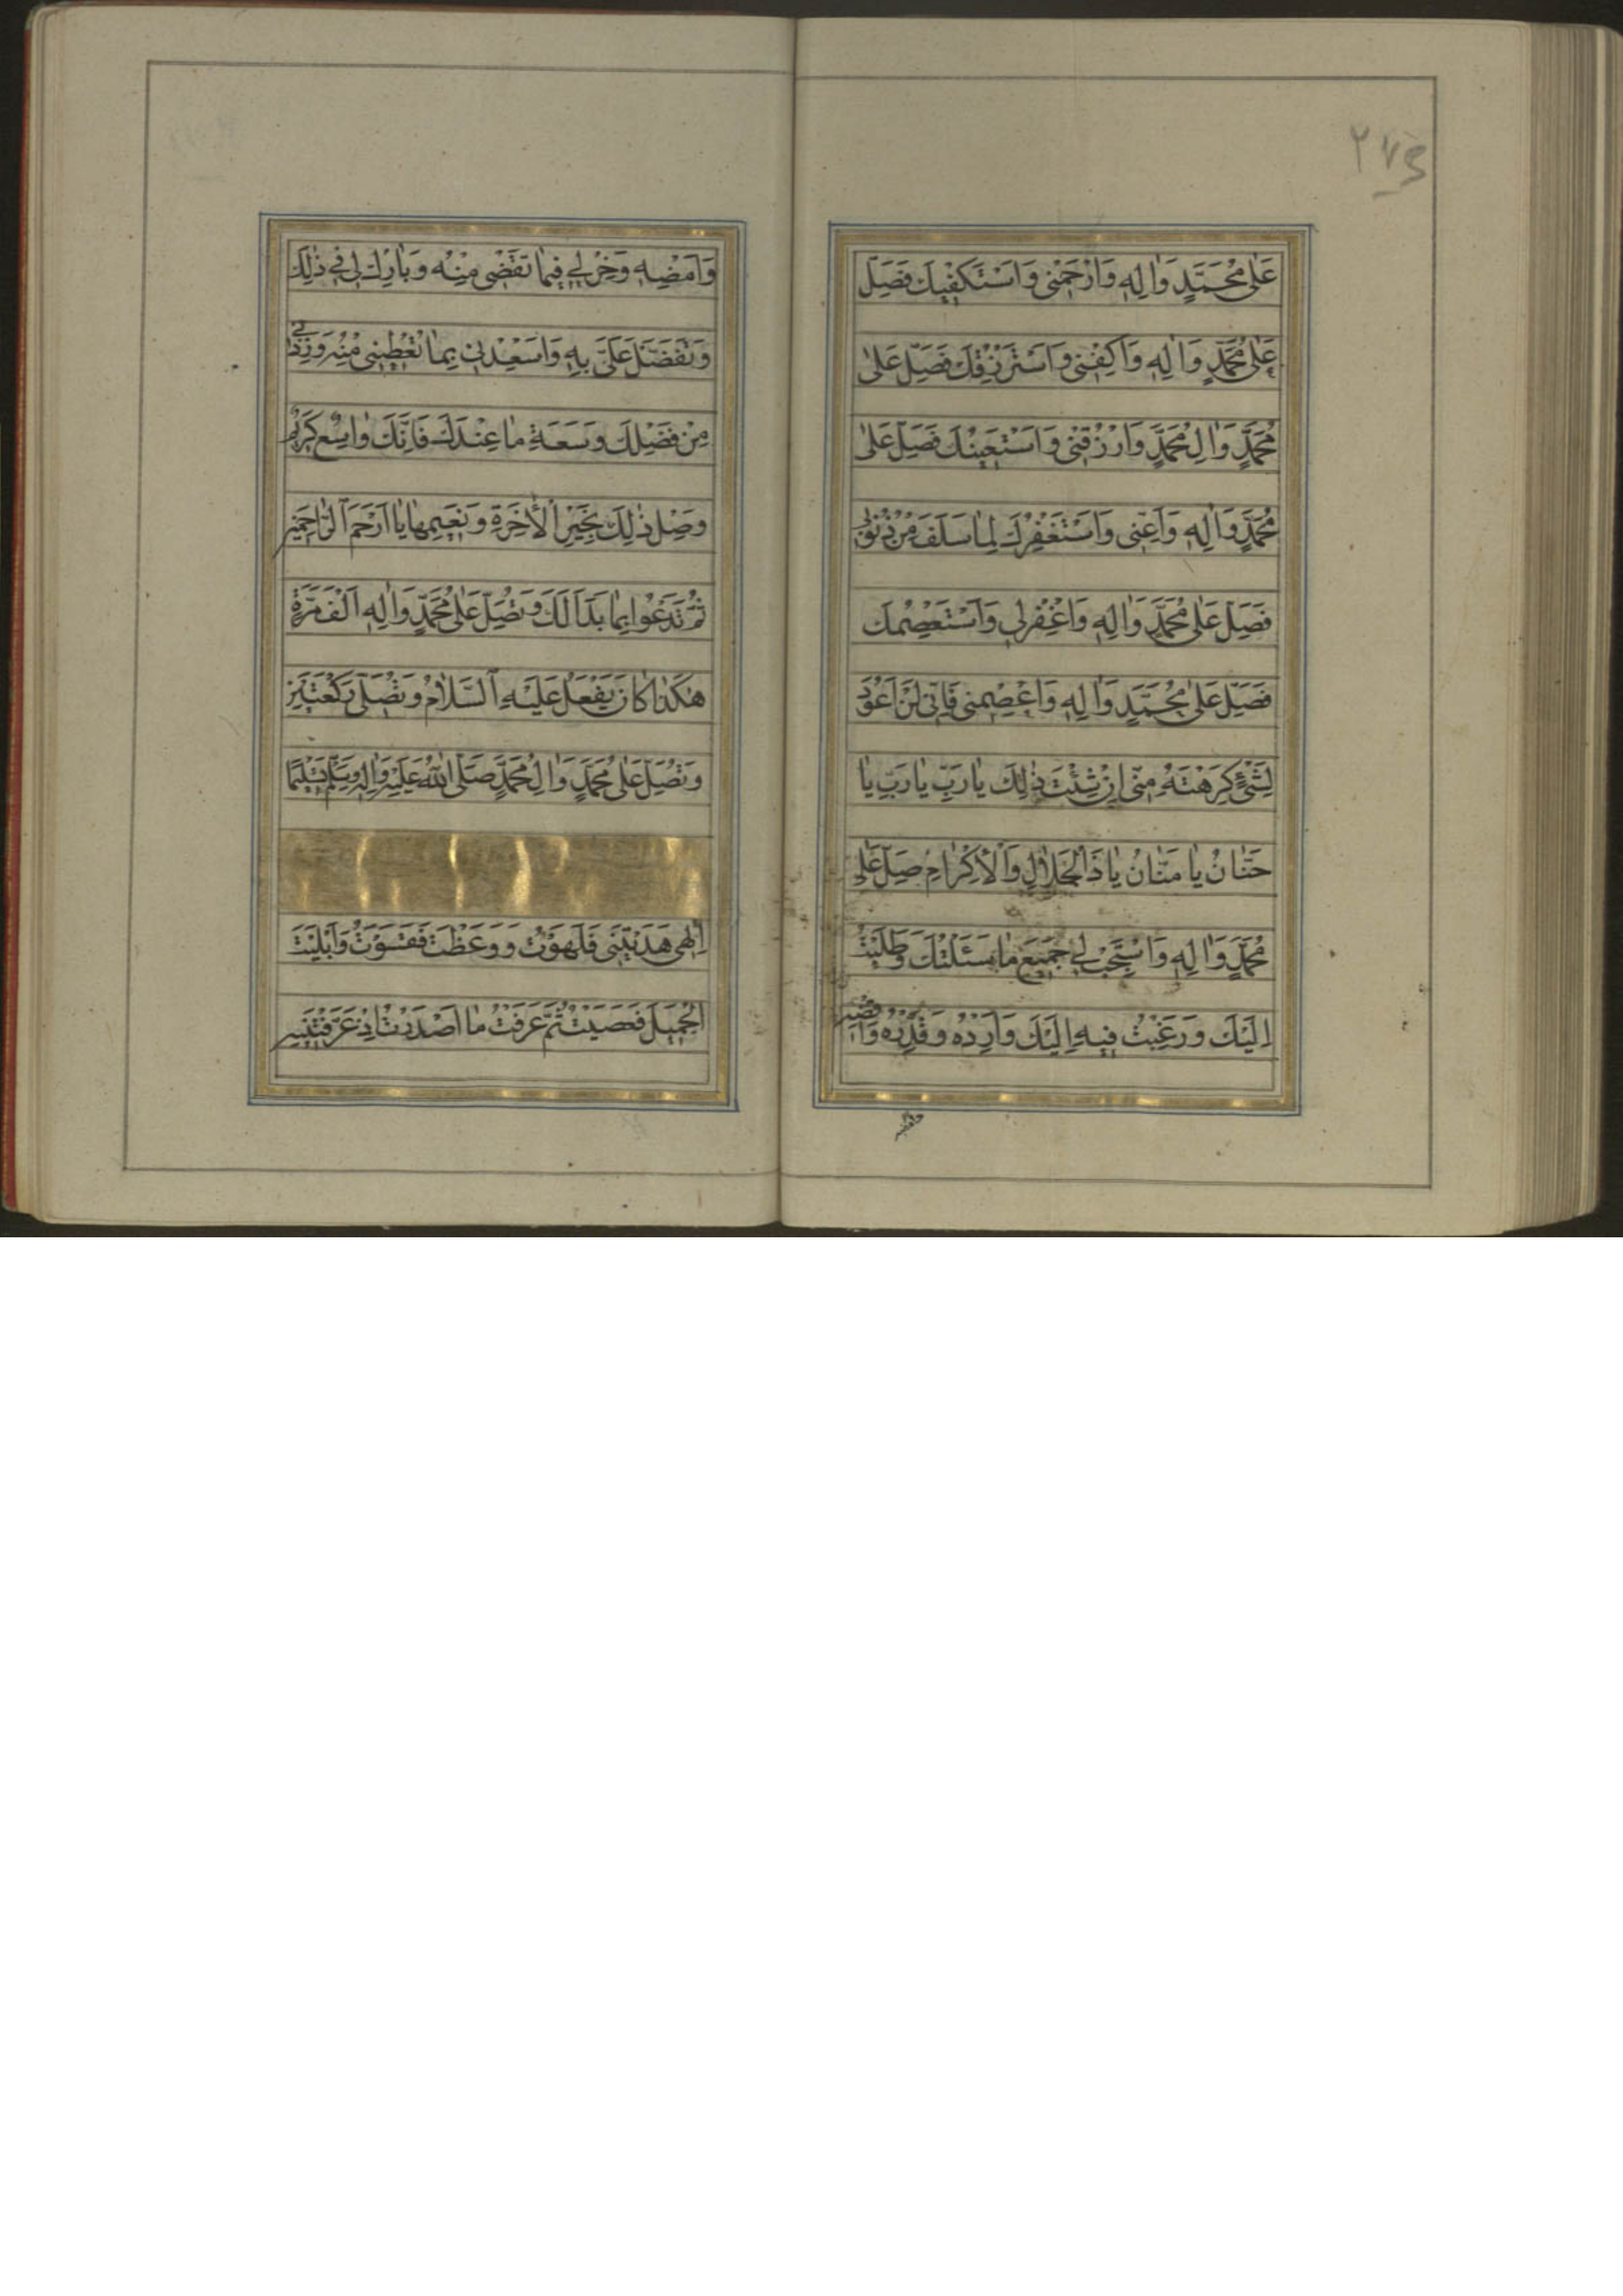 ٢٧٥
عَلىٰ مُحَمَّدٍ وَاٰلِهِ وَارْحَمْنى وَاَسْتَكْفيكَ فَصَلِّ
عَلىٰ مُحَمَّدٍ وَاٰلِهِ وَاكْفِنى وَاَسْتَرْزِقُكَ فَصَلِّ عَلىٰ
مُحَمَّدٍ وَاٰلِ مُحَمَّدٍ وَارْزُقْنى وَاَسْتَعينُكَ فَصَلِّ عَلىٰ
مُحَمَّدٍ وَاٰلِهِ وَاَعِنّى وَاَسْتَغْفِرُكَ لِمٰا سَلَفَ مِنْ ذُنُوبى
فَصَلِّ عَلىٰ مُحَمَّدٍ وَاٰلِهِ وَاغْفِرْلى وَاَسْتَعْصِمُكَ
فَصَلِّ عَلىٰ مُحَمَّدٍ وَاٰلِهِ وَاعْصِمْنى فَاِنّى لَنْ اَعُودَ
لِشَىْءٍ كَرِهْتَهُ مِنّى اِنْ شِئْتَ ذٰلِكَ يٰا رَبِّ يٰا رَبِّ يٰا
حَنّٰانُ يٰا مَنّٰانُ يٰا ذَا الْجَلاٰلِ وَالْاِكْرٰامِ صَلِّ عَلىٰ
مُحَمَّدٍ وَاٰلِهِ وَاسْتَجِبْ لى جَميعَ مٰا سَئَلْتُكَ وَطَلَبْتُ
اِلَيْكَ وَرَغِبْتُ فيهِ اِلَيْكَ وَاَرِدْهُ وَقَدِّرْهُ وَاقْضِهِ
وامضه
وَاَمْضِهِ وَخِرْ لى فيمٰا تَقْضى مِنْهُ وَبٰارِكْ لى فى ذٰلِكَ
وَتَفَضَّلْ عَلَىَّ بِهِ وَاَسْعِدْنى بِمٰا تُعْطينى مِنْهُ وَزِدْنى
مِنْ فَضْلِكَ وَسَعَةِ مٰا عِنْدَكَ فَاِنَّكَ وٰاسِعٌ كَريمٌ
وَصِلْ ذٰلِكَ بِخَيْرِ الْاٰخِرَةِ وَنَعيمِهٰا يٰا اَرْحَمَ الرّٰاحِمينَ
ثُمَّ تَدْعُوا بِمٰا بَدَا لَكَ وَتُصَلّ عَلىٰ مُحَمَّدٍ وَاٰلِهِ اَلْفَ مَرَّةٍ
هٰكَذٰا كٰانَ يَفْعَلُ عَلَيْهِ السَّلاٰمُ وَتُصَلّى رَكْعَتَيْنِ
وَتُصَلّ عَلىٰ مُحَمَّدٍ وَاٰلِ مُحَمَّدٍ صَلَّى اللّٰهُ عَلَيْهِ وَاٰلِهِ وَسَلَّمَ تَسْليمًا
اِلٰهى هَدَيْتَنى فَلَهَوْتُ وَوَعَظْتَ فَقَسَوْتُ وَاَبْلَيْتَ
الْجَميلَ فَعَصَيْتُ ثُمَّ عَرَفْتُ مٰا اَصْدَرْتَ اِذْ عَرَّفْتَنيهِ